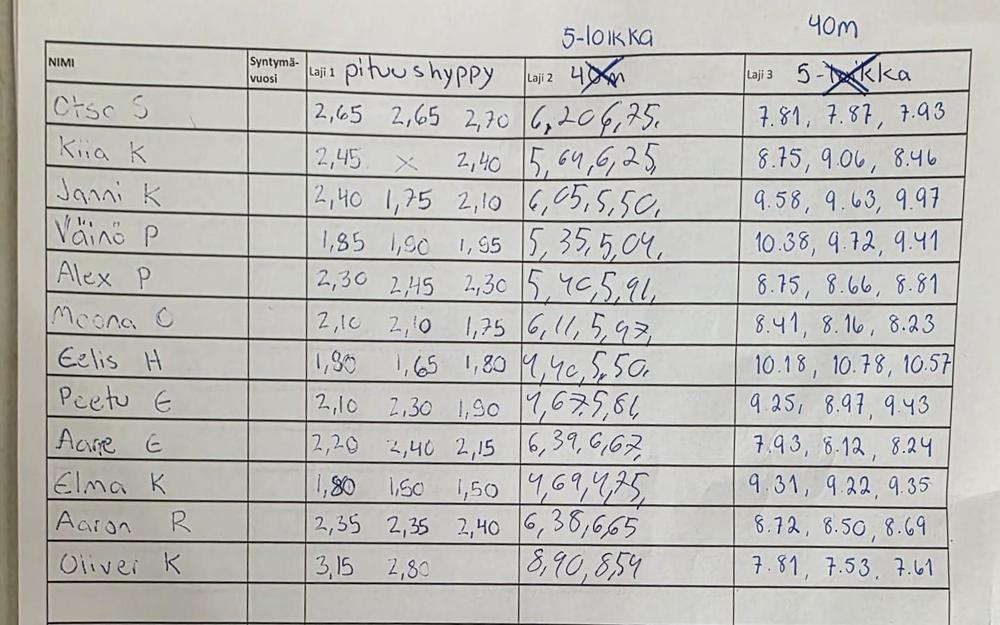 5-LOIKKA 40M
NIMI Syntymä-vuosi Laji 1 pituushyppy Laji 2 40m Laji 3 5-loikka
Otso S 2,65 2,65 2,70 6,20 6,75. 7.81, 7.87, 7.93
Kiia K 2,45 x 2,40 5,64, 6,25, 8.75, 9.06, 8.46
Janni K 2,40 1,75 2,10 6,05, 5,50, 9.58, 9.63, 9.97
Väinö P 1,85 1,90 1,95 5,35, 5,04, 10.38, 9.72, 9.41
Alex P 2,30 2,45 2,30 5,40, 5,91, 8.75, 8.66, 8.81
Moona O 2,10 2,10 1,75 6,11, 5,97, 8.41, 8.16, 8.23
Eelis H 1,90 1,65 1,80 4,40, 5,50, 10.18, 10.78, 10.57
Peetu E 2,10 2,30 1,90 4,67, 5,81, 9.25, 8.97, 9.43
Aarre E 2,20 2,40 2,15 6,39, 6,67, 7.93, 8.12, 8.24
Elma K 1,80 1,50 1,50 4,69, 4,75, 9.31, 9.22, 9.35
Aaron R 2,35 2,35 2,40 6,38, 6,65 8.72, 8.50, 8.69
Oliver K 3,15 2,80 8,90, 8,54 7.81, 7.53, 7.61